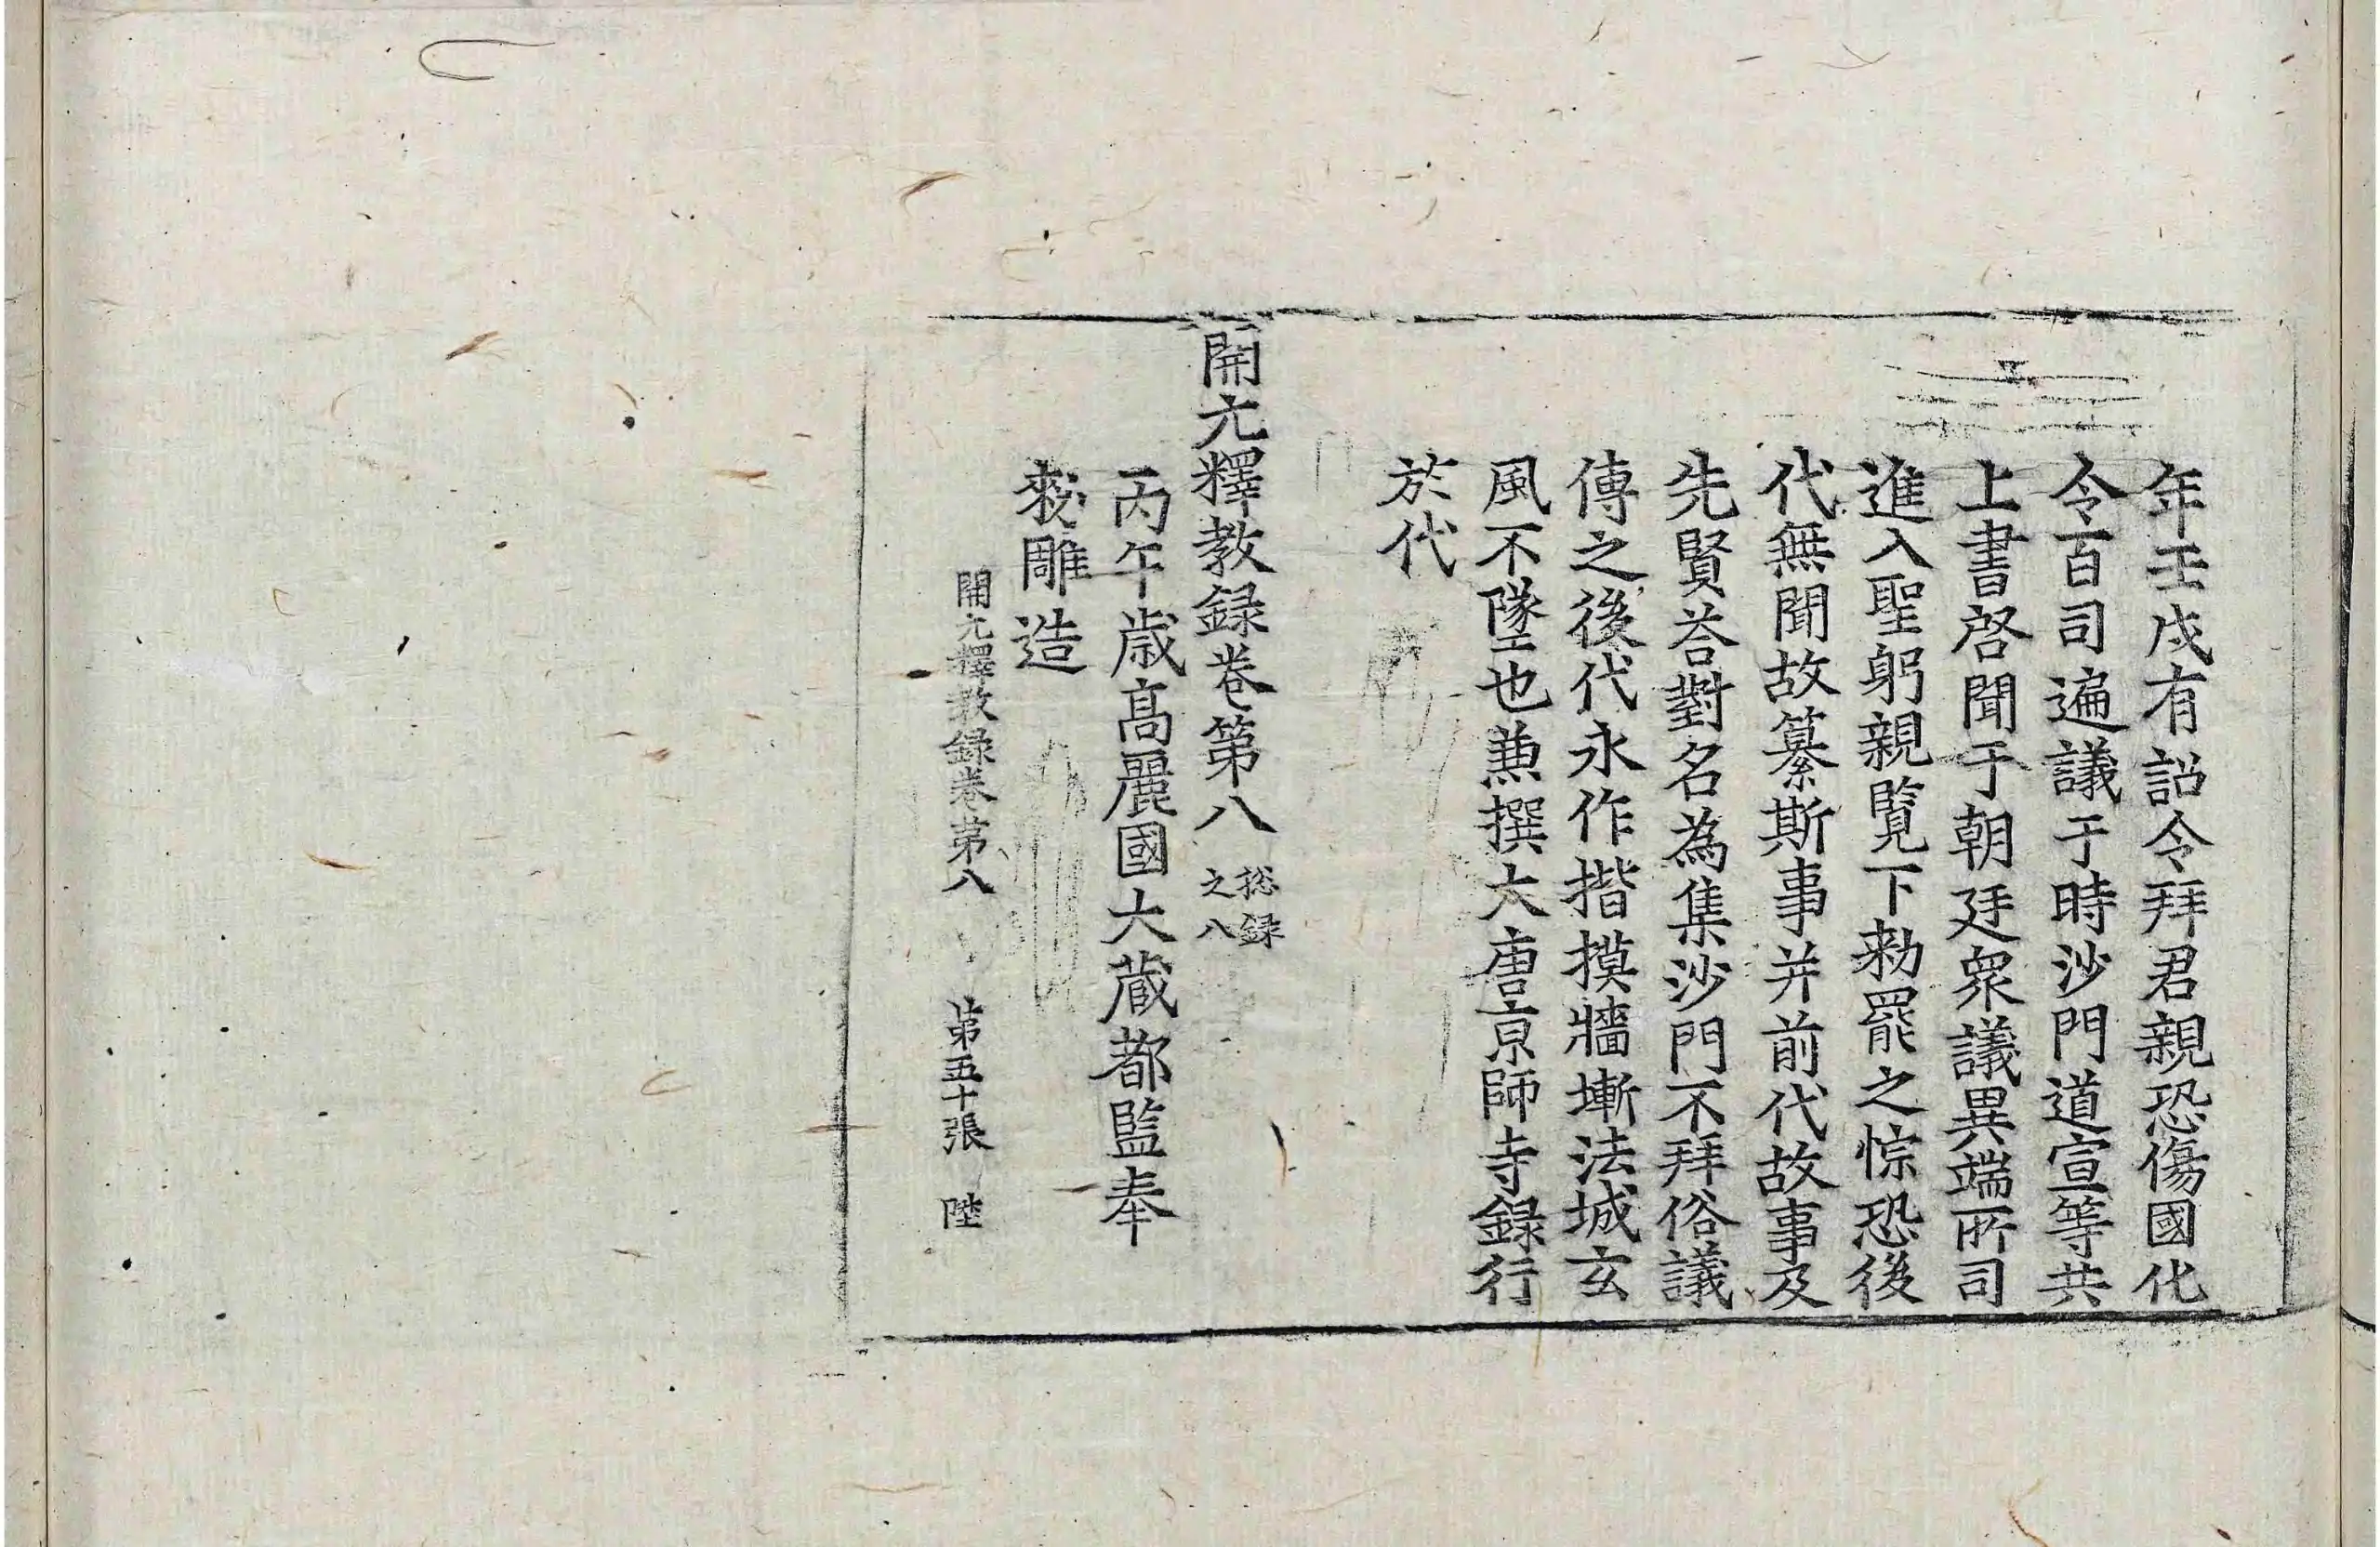 年壬戌有詔令拜君親恐傷國化
令百司遍議于時沙門道宣等共
上書啓聞于朝廷衆議異端所司
進入聖躬親覧下勑罷之悰恐後
代無聞故纂斯事并前代故事及
先賢荅對名為集沙門不拜俗議
傳之後代永作揩摸牆塹法城玄
風不墜也兼撰大唐京師寺録行
於代
開元釋教録卷第八 捴録之八
丙午歳高麗國大蔵都監奉
勑雕造
開元釋教録卷第八 第五十張 陛